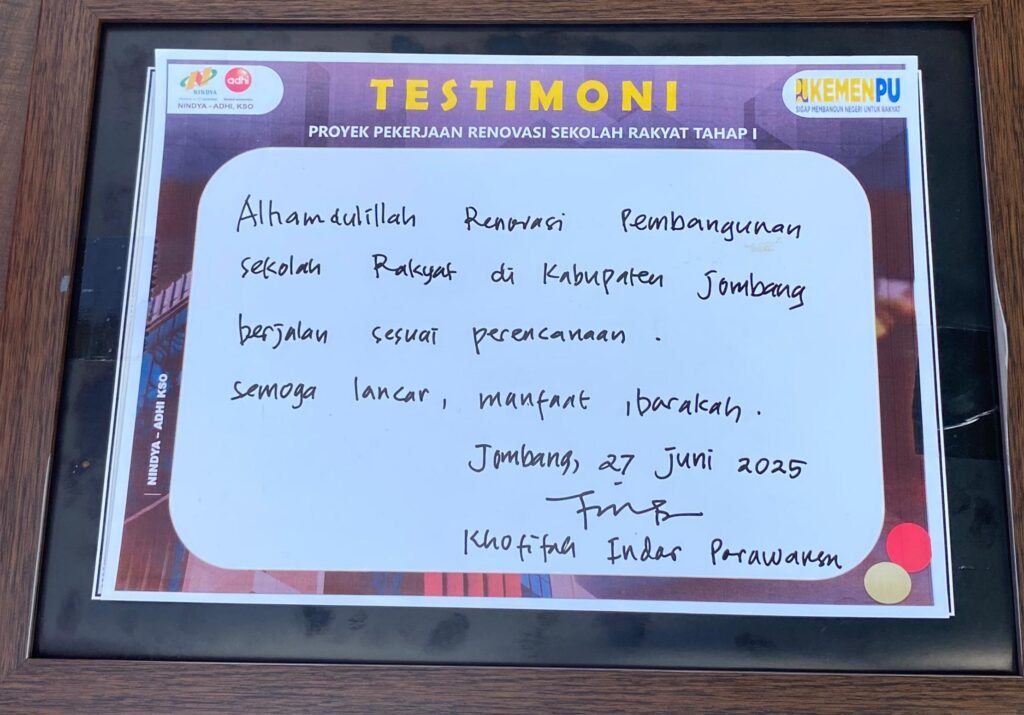 NINDYA
adhi
NINDYA - ADHI, KSO
TESTIMONI
KEMENPU
SIGAP MEMBANGUN NEGERI UNTUK RAKYAT
PROYEK PEKERJAAN RENOVASI SEKOLAH RAKYAT TAHAP I
Alhamdulillah Renovasi Pembangunan
sekolah Rakyat di Kabupaten Jombang
berjalan sesuai perencanaan.
semoga lancar, manfaat, barakah.
Jombang, 27 Juni 2025
Khofifah Indar Parawansa
NINDYA – ADHI KSO